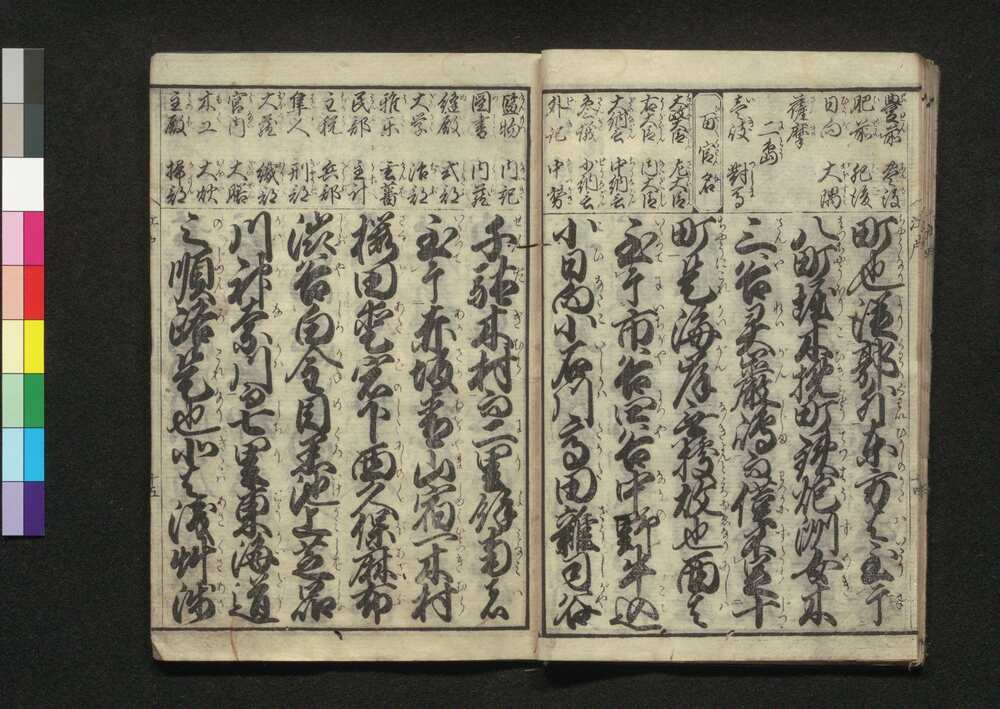 豊前 豊後
肥前 肥後
日向 大隅
薩摩
二島
壱岐 対馬
百官名
太政大臣 左大臣
右大臣 内大臣
大納言 中納言
参議 少納言
外記 中務
町也
八町堀木挽町鉄炮洲女木
三谷霊巌嶋
町是海岸
至于市谷四谷中野牛込
小日向小石川高田雑司谷
監物 内記
図書 内蔵
縫殿 式部
大学 治部
雅楽 玄蕃
民部 主計
主税 兵部
隼人 刑部
大蔵 織部
宮内 大膳
木工 大炊
主殿 掃部
千駄木村而二里余南者
至于赤坂青山宿一木村
桜田愛宕下西久保麻布
渋谷白金目黒池上芝品
川神奈川而七里東海道
之順路是也北者浅草